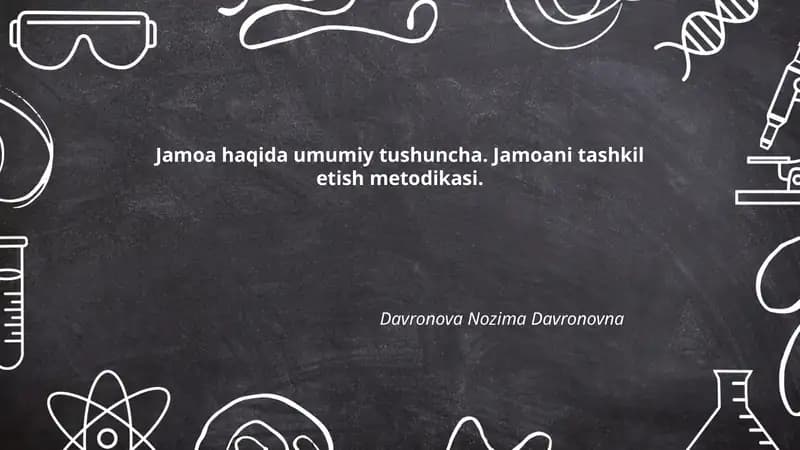 Jamoa haqida umumiy tushuncha. Jamoani tashkil
etish metodikasi.
Davronova Nozima Davronovna